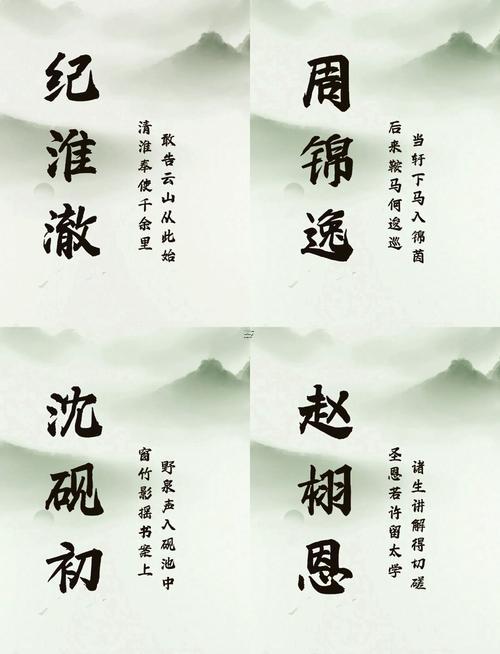 纪淮澈
清淮奉使千余里
敢告云山从此始
周锦逸
后来鞍马何逡巡
当轩下马入锦茵
沈砚初
窗竹影摇书案上
野泉声入砚池中
赵栩恩
圣恩若许留太学
诸生讲解得切磋